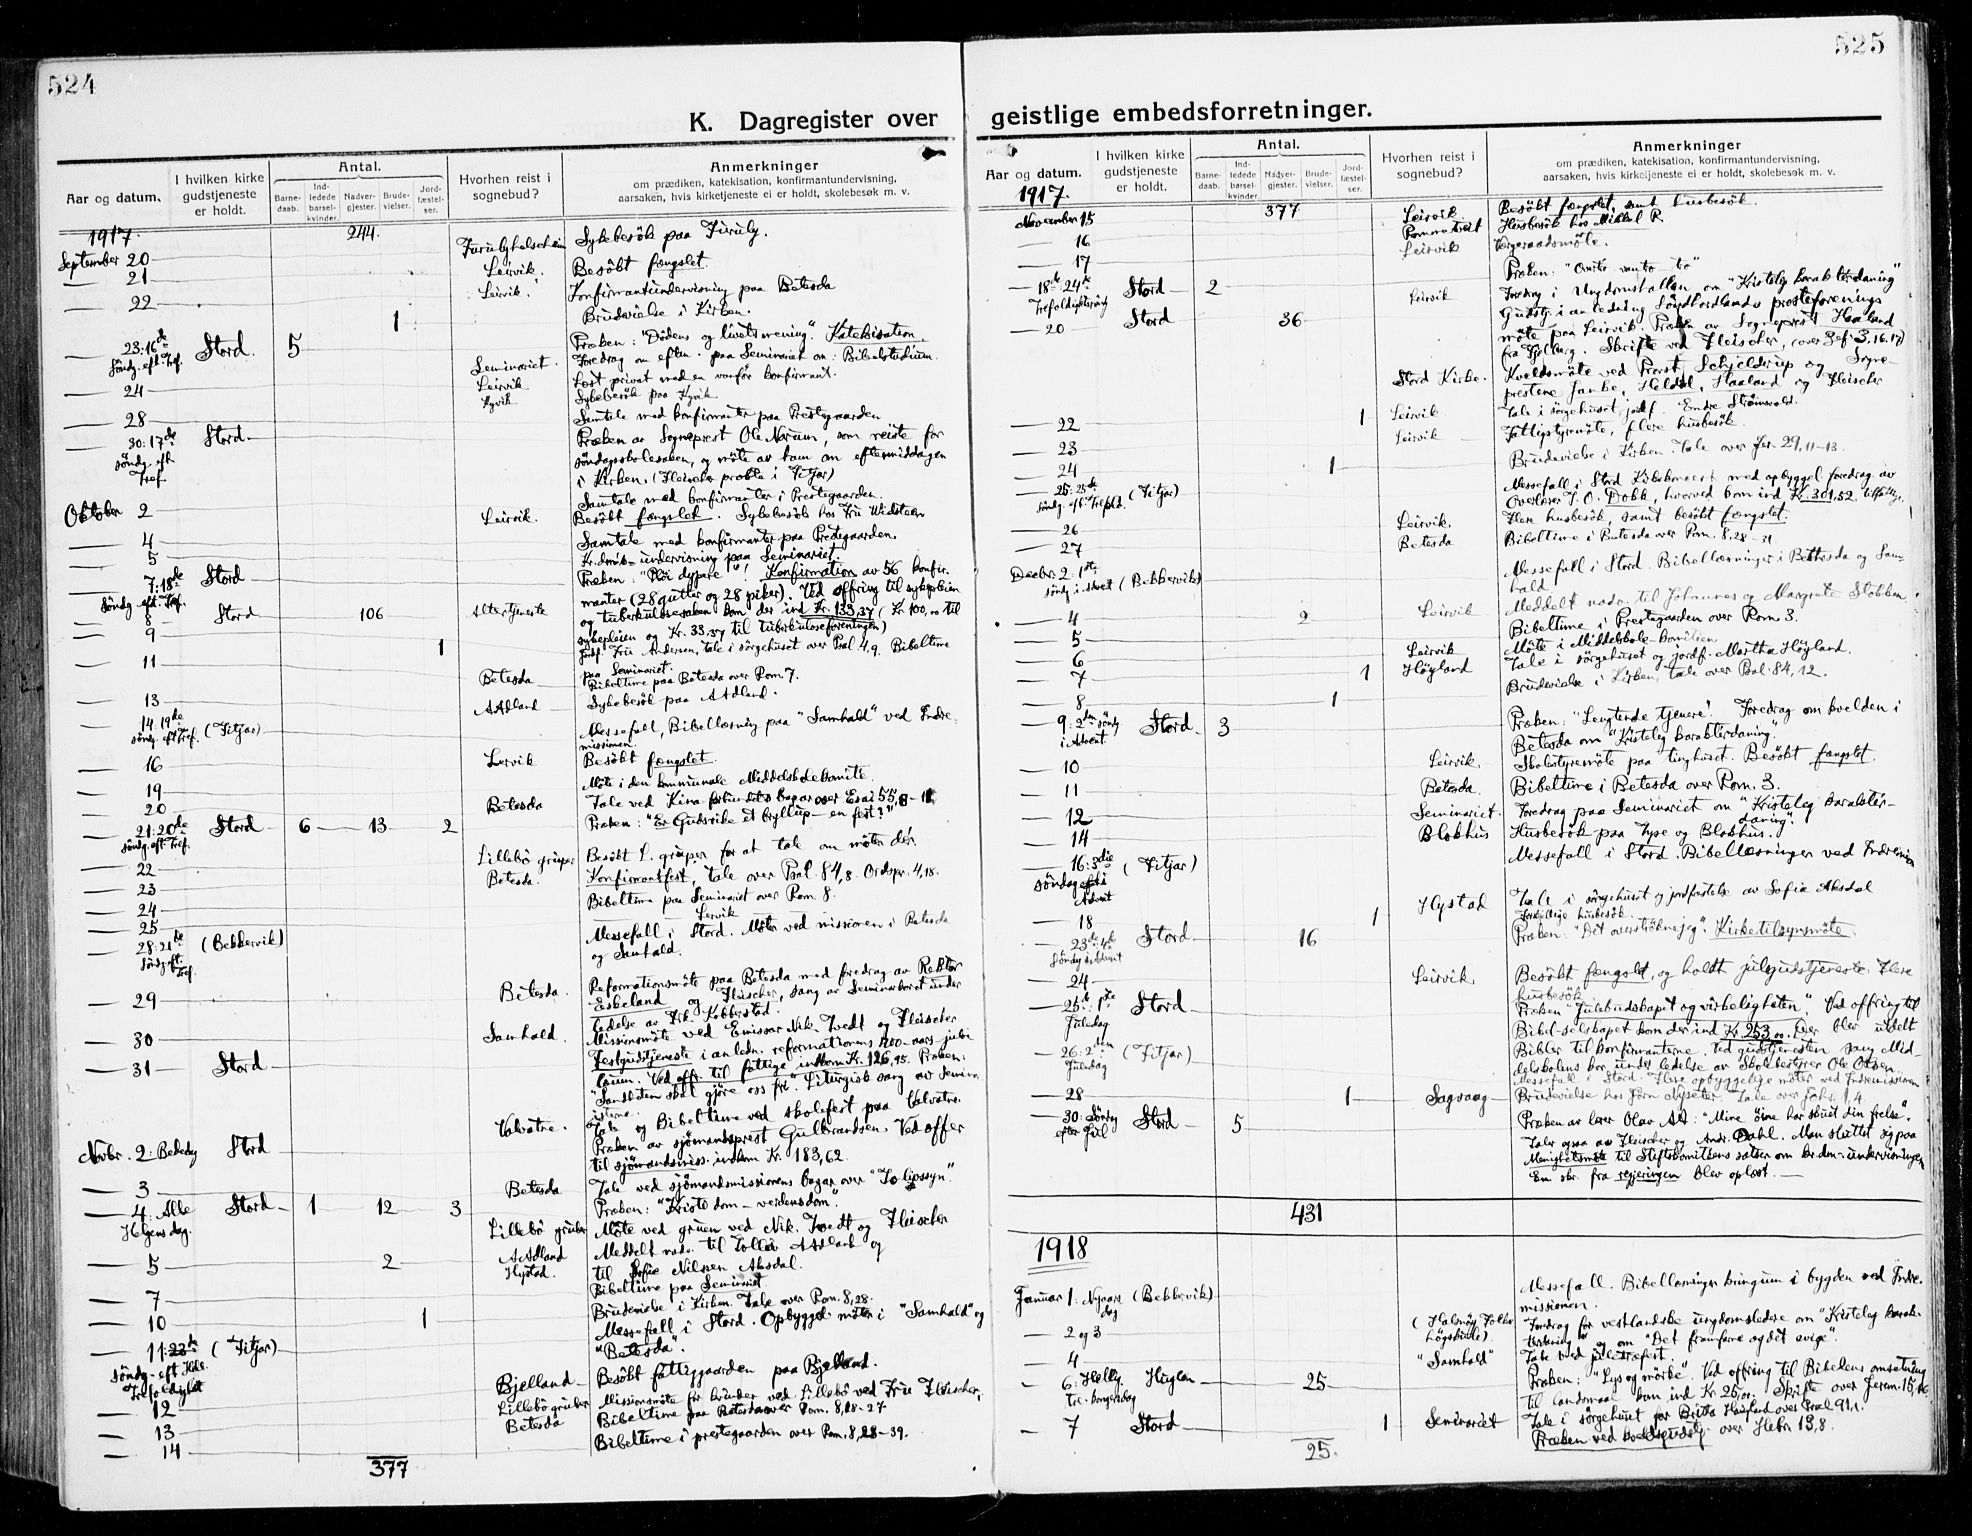 524
K. Dagregister over
Aar og datum.
I hvilken kirke gudstjeneste er holdt.
Antal.
Barne-daab.
Ind-ledede barsel-kvinder.
Nadver-gjester.
Brude-vielser.
Jord-fæstel-ser.
Hvorhen reist i sognebud?
Anmerkninger
om prædiken, katekisation, konfirmantundervisning,
aarsaken, hvis kirketjeneste ei er holdt, skolebesøk m. v.
1917. 244.
September 20 Sykebesök paa Furuly.
21 Leirvik. Besökt fængslet.
22 Leirvik. Konfirmantundervisning paa Betesda
1 Brudevielse i Kirken.
23: 16de Stord. 5 Præken: "Dödens og livets mening". Katekisation.
Söndg. eft. Tref. Seminariet. Foredrag om eftm. paa Seminariet om: Bibelstudium.
24 Leirvik Læst privat med en vanför konfirmant.
Sykebesök paa
28 Samtale med konfirmanter paa Prestegaarden
30: 17de Stord Præken av Sogneprest Ole Norum, som reiste for
söndg. eft. söndagsskolesaken, og möte av ham om eftermiddagen
Tref. i Kirken. (Fleischer prækte i Fitjar)
Samtale med konfirmanter i Prestegaarden.
Oktober 2 Leirvik. Besökt fængslet. Sykebesök hos Fru Widsteen
4 Samtale med konfirmanter paa Prestegaarden.
5 Kr.dms-undervisning paa Seminariet.
7: 18de Stord Præken: "Læg dypere"! Konfirmation av 56 konfir-
Söndg. eft. Tref. manter (28 gutter og 28 piker). Ved offring til sykepleien
8 Stord 106 Altertjeneste og tuberkulosesaken kom der ind Kr. 133,37 (Kr 100,00 til
9 sykepleien og Kr. 33,37 til tuberkuloseforeningen)
1 Jordf. Fru Andersen, tale i sörgehuset over Psal. 4,9. Bibeltime
11 paa Seminariet.
Betesda Bibeltime paa Betesda over Rom 7.
13 Aadland Sykebesök paa Adland.
14: 19de söndg. eft Tref. (Fitjar) Messefall, Bibellæsning paa "Samhald" ved Indre-
missionen.
16 Leirvik Besökt fængslet.
19 Möte i den kommunale Middelskolekomite.
20 Betesda Tale ved Kinaforbundets bazar over Esai 55,8-11
21: 20de Stord 6 13 2 Præken: "Er Guds rike et bryllup — en fest?"
söndg. eft. Tref.
22 Lillebö gruper Besökt L. gruper for at tale om möter dér.
23 Betesda. Konfirmantfest, tale over Psal. 84,8. Ordspr. 4,18.
24 Bibeltime paa Seminariet over Rom 8.
25 Leirvik
28: 21de (Bekkervik) Messefall i Stord. Möter ved missionen i Betesda
Söndg. eft. Tref. og Samhald.
29 Betesda. Reformationsmöte paa Betesda med foredrag av Rektor
Eskeland og Fleischer, sang av Seminarkoret under
ledelse av Frk. Kobberstad.
30 Samhald. Missionsmöte ved Emissær Nik. Tvedt og Fleischer
31 Stord Festgudstjeneste i anledn. reformationens 400-aars jubi-
læum. Ved offr. til fattige indkom Kr. 126,95. Præken:
"Sandheten skal gjöre oss fri". Liturgisk sang av Semina-
isterne.
Valvatne. Tale og Bibeltime ved skolefest paa Valvatne.
Novbr. 2: Bededg Stord Præken av sjömandsprest Gulbrandsen. Ved offer
til sjömandsmiss. indkom Kr. 183,62.
3 Betesda Tale ved sjömandsmissionens bazar over "To lipssyn".
4: Alle Stord 1 12 3 Præken: "Kristendom — verdensdom".
Helgensdag. Lillebö gruber Möte ved gruen ved Nik. Tvedt og Fleischer
5 2 Aadland Meddelt nadv. til Tollev Aadland og
Hystad. til Sofie Nilssen Aksdal.
7 Bibeltime paa Seminariet
10 1 Brudevielse i Kirken. Tale over Rom. 8,28.
11: 23de (Fitjar) Messefall i Stord. Opbyggel. möter i "Samhald" og
söndg. eft. Trefoldighet "Betesda".
12 Bjelland Besökt fattiggaarden paa Bjelland.
13 Lillebö gruber Missionsmöte for kvinder ved Lillebö ved Fru Fleischer,
Betesda Bibeltime paa Betesda over Rom. 8,18-27
14 Bibeltime i prestegaarden over Rom. 8,28-39.
377
525
geistlige embedsforretninger.
Aar og datum.
I hvilken kirke gudstjeneste er holdt.
Antal.
Barne-daab.
Ind-ledede barsel-kvinder.
Nadver-gjester.
Brude-vielser.
Jord-fæstel-ser.
Hvorhen reist i sognebud?
Anmerkninger
om prædiken, katekisation, konfirmantundervisning,
aarsaken, hvis kirketjeneste ei er holdt, skolebesøk m. v.
1917.
377
November 15 Leirvik. Besökt fængslet, samt husbesök.
16 Husbesök hos Mikkel R.
17 Leirvik Vergeraadsmöte.
18de: 24de Stord 2 Præken:
Trefoldighetssöndg Leirvik Foredrag i Ungdomshallen om "Kristelig karakterdaning"
20 Stord 36 Gudstj. i anledning Söndhordlands presteforenings
möte paa Leirvik. Præken av Sogneprest Haaland
fra Fjelberg. Skrifte ved Fleischer, (over Ef. 3,16.17)
Stord Kirke. Kveldsmöte ved Provst Schjelderup og Sogne-
prestene Hanke, Heldal, Haaland og Fleischer
22 1 Leirvik Tale i sörgehuset, jordf. Endre Strömsvold.
23 Leirvik Fattigstyremöte, flere husbesök.
24 1 Brudevielse i Kirken. Tale over Jer. 29,11-13.
25: 25de (Fitjar) Messefall i Stord. Kirkekoncert med opbyggel. foredrag av
söndg. eft. Trefold. Overlærer J. O. Dobk, hvorved kom ind Kr. 301,52.
26 Leirvik. Flere husbesök, samt besökt fængslet.
27 Betesda Bibeltime i Betesda over Rom. 8,28-31
Decbr. 2: 1ste söndg i Advent (Bekkervik) Messefall i Stord. Bibellæsninger i Bethesda og Sam-
hald.
4 2 Leirvik Meddelt nadv. til Johannes og Margrete Stobben.
5 Bibeltime i Prestegaarden over Rom 3.
6 Leirvik Möte i Middelskole-komiteen
7 1 Höyland Tale i sörgehuset og jordf. Martha Höyland.
8 1 Brudevielse i Kirken, tale over Psal. 84,12.
9: 2den söndg i Advent. Stord. 3 Præken: "Lengtende tjenere". Foredrag om kvelden i
Betesda om "Kristelig karakterdaning".
10 Leirvik. Skolestyremöte paa tinghuset. Besökt fængslet.
11 Betesda. Bibeltime i Betesda over Rom. 3.
12 Seminariet. Foredrag paa Seminariet om "Kristelig karakter-
daning".
14 Blokhus Husbesök paa Tyse og Blokhus.
16: 3die Söndag i Advent (Fitjar) Messefall i Stord. Bibellæsninger ved Indremis
18 1 Hystad Tale i sörgehuset og jordfæstelse av Sofie Aksdal
Forskjellige husbesök.
23de: 4de Söndag i Advent Stord 16 Præken: "Det overströkne jeg". Kirketilsynsmöte.
24 Leirvik. Besökt fængslet, og holdt julegudstjeneste. Flere
husbesök.
25de: 1ste Juledag Stord Præken "Julebudskapet og virkeligheten". Ved offring til
Bibel-selskapet kom der ind Kr. 253,00. Der blev uddelt
26: 2den Juledag (Fitjar) Bibler til konfirmanterne. Ved gudstjenesten sang Mid-
delskolens kor under ledelse av Skolebestyrer Ole Olsen.
Messefall i Stord. Flere opbyggelige möter ved Indremissionen
28 1 Sagvaag Brudevielse hos Jörn Nysæter. Tale over Joh. 1,4.
30: Söndg efter Jul Stord 5 Præken av lærer Olav Aa: "Mine öine har skuet din frelse".
Taler ogsaa av Fleischer og Andr. Dahl. Man sluttet sig paa
Menighetsmöte til Stiftskomiteens satser om kr.dm.-undervisningen
En skr. fra regjeringen blev oplæst.
431
1918
Januar 1: Nyaarsdag (Bekkervik) Messefall. Bibellæsninger kringum i bygden ved Indre-
missionen.
2 og 3 (Halsnöy Folkehögskule) Foredrag for vestlandske ungdomsledere om "Kristelig karak-
terdaning" og om "Det framfarne og det evige".
4 "Samhald" Tale ved juletræfest.
6: Hellig Tre-kongersdag Huglen 25 Præken: "Lys og mörke". Ved offring til Bibelens omsetning
til landsmaal kom ind Kr 25,00. Skrifte over Jerem. 15,16.
7 Stord 1 Seminariet Tale i sörgehuset for Britta Haugland over Psal 91,1.
Præken ved kveldsgudstj. over Hebr. 13,8.
25.